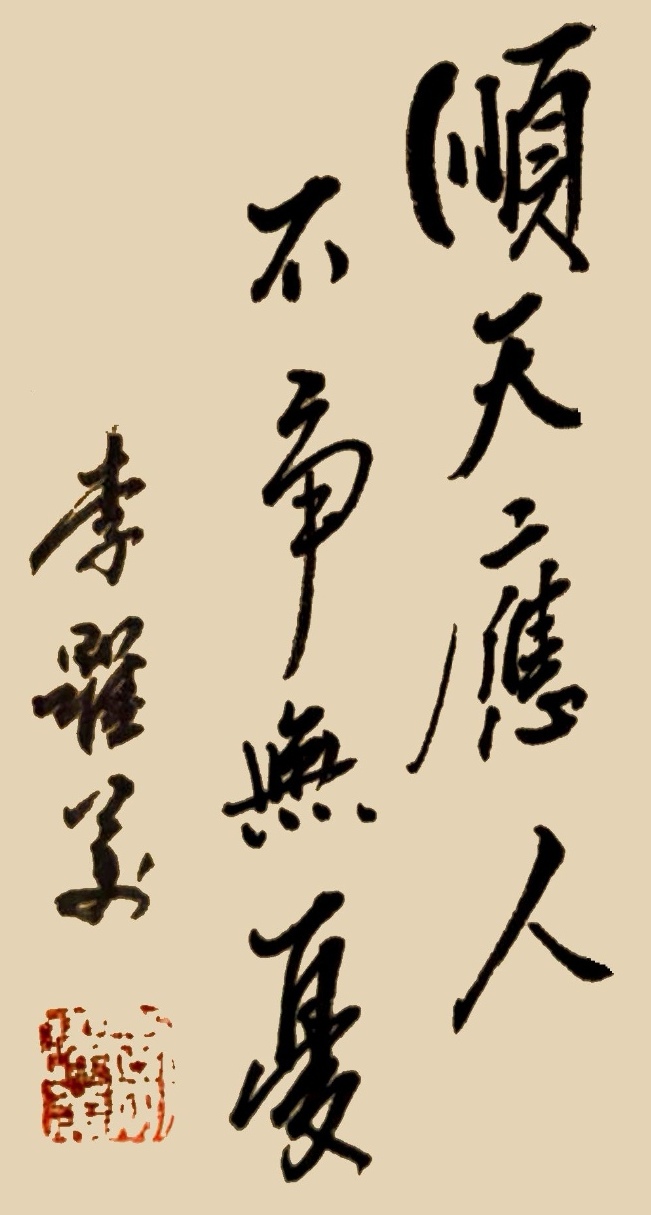 順天應人
不爭無憂
李